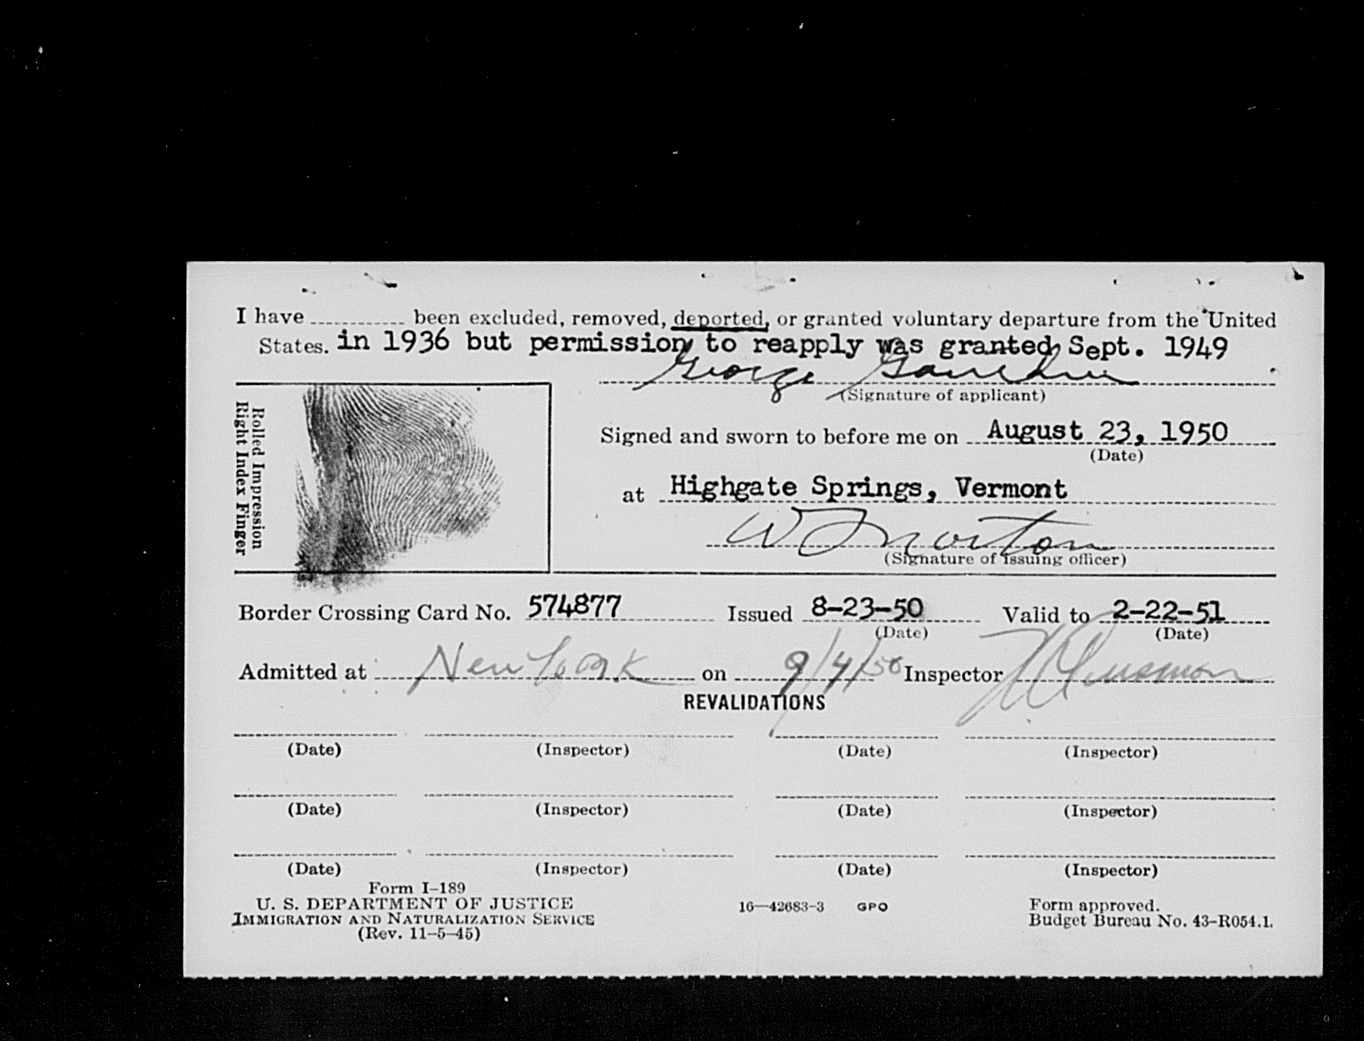 I have ............ been excluded, removed, deported, or granted voluntary departure from the United
States. in 1936 but permission to reapply was granted Sept. 1949
George
(Signature of applicant)
Rolled Impression
Right Index Finger
Signed and sworn to before me on August 23, 1950
(Date)
at Highgate Springs, Vermont
W Norton
(Signature of issuing officer)
Border Crossing Card No. 574877 Issued 8-23-50 Valid to 2-22-51
(Date) (Date)
Admitted at New York on 9/4/50 Inspector
REVALIDATIONS
(Date) (Inspector) (Date) (Inspector)
(Date) (Inspector) (Date) (Inspector)
(Date) (Inspector) (Date) (Inspector)
Form I-189
U. S. DEPARTMENT OF JUSTICE
IMMIGRATION AND NATURALIZATION SERVICE
(Rev. 11-5-45)
16—42683-3 GPO
Form approved.
Budget Bureau No. 43-R054.1.